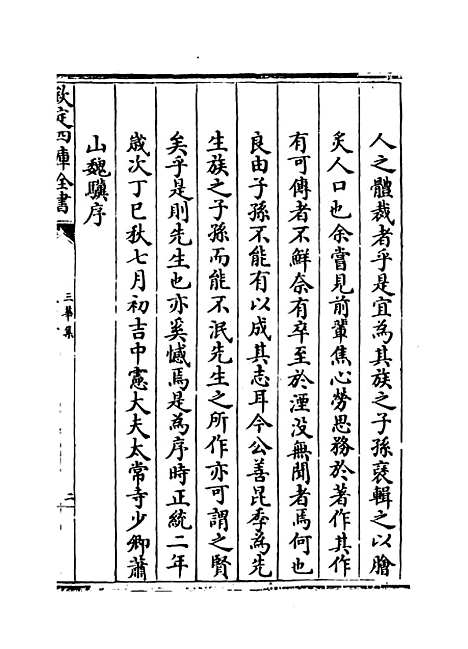 人之體裁者乎是宜為其族之子孫裒輯之以膾
炙人口也余嘗見前輩焦心勞思務於著作其作
有可傳者不鮮奈有卒至於湮没無聞者焉何也
良由子孫不能有以成其志耳今公善昆季為先
生族之子孫而能不泯先生之所作亦可謂之賢
矣乎是則先生也亦奚憾焉是為序時正統二年
歲次丁巳秋七月初吉中憲大夫太常寺少卿蕭
山魏驥序
欽定四庫全書
三華集
二